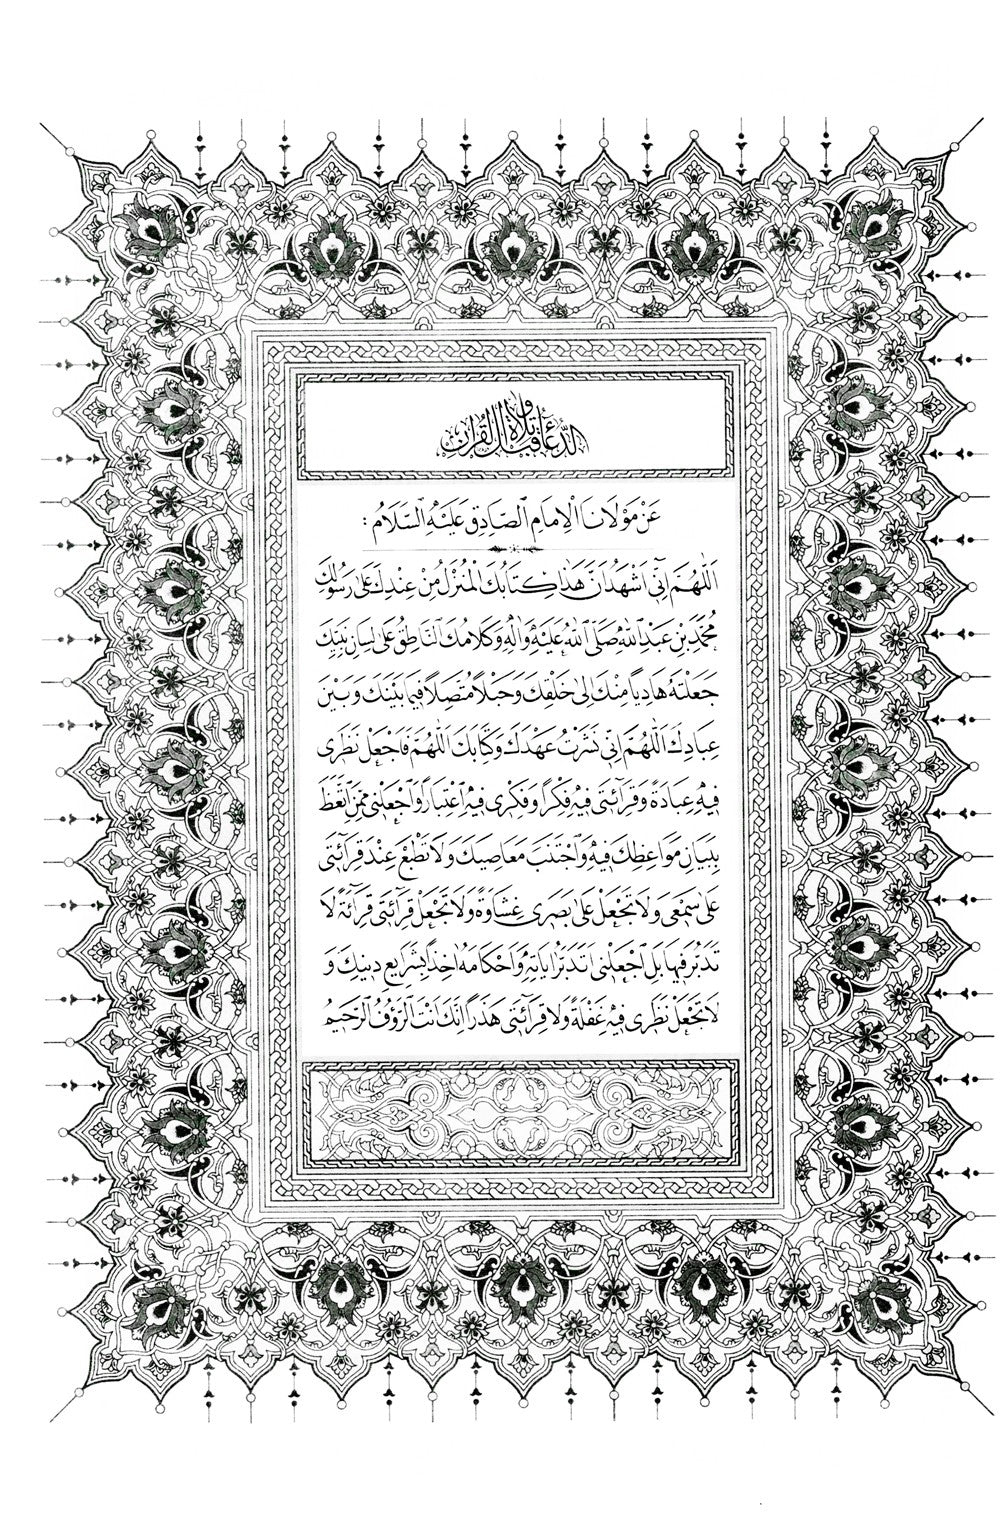 الدُّعَاءُ قَبْلَ تِلَاوَةِ الْقُرْآنِ
عَنْ مَوْلَانَا الْإِمَامِ الصَّادِقِ عَلَيْهِ السَّلَامُ :
اَللّٰهُمَّ اِنّٖى اَشْهَدُ اَنَّ هٰذَا كِتَابُكَ الْمُنْزَلُ مِنْ عِنْدِكَ عَلٰى رَسُولِكَ
مُحَمَّدِ بْنِ عَبْدِ اللّٰهِ صَلَّى اللّٰهُ عَلَيْهِ وَاٰلِهٖ وَكَلَامُكَ النَّاطِقُ عَلٰى لِسَانِ نَبِيِّكَ
جَعَلْتَهُ هَادِيًا مِنْكَ اِلٰى خَلْقِكَ وَحَبْلًا مُتَّصِلًا فٖيمَا بَيْنَكَ وَبَيْنَ
عِبَادِكَ اَللّٰهُمَّ اِنّٖى نَشَرْتُ عَهْدَكَ وَكِتَابَكَ اَللّٰهُمَّ فَاجْعَلْ نَظَرٖى
فٖيهِ عِبَادَةً وَقِرَآئَتٖى فٖيهِ فِكْرًا وَفِكْرٖى فٖيهِ اعْتِبَارًا وَاجْعَلْنٖى مِمَّنِ اتَّعَظَ
بِبَيَانِ مَوَاعِظِكَ فٖيهِ وَاجْتَنَبَ مَعَاصِيَكَ وَلَا تَطْبَعْ عِنْدَ قِرَآئَتٖى
عَلٰى سَمْعٖى وَلَا تَجْعَلْ عَلٰى بَصَرٖى غِشَاوَةً وَلَا تَجْعَلْ قِرَآئَتٖى قِرَآئَةً لَا
تَدَبُّرَ فٖيهَا بَلِ اجْعَلْنٖى اَتَدَبَّرُ اٰيَاتِهٖ وَاَحْكَامَهُ اٰخِذًا بِشَرَايِعِ دٖينِكَ وَ
لَا تَجْعَلْ نَظَرٖى فٖيهِ غَفْلَةً وَلَا قِرَآئَتٖى هَذَرًا اِنَّكَ اَنْتَ الرَّؤُفُ الرَّحٖيمُ